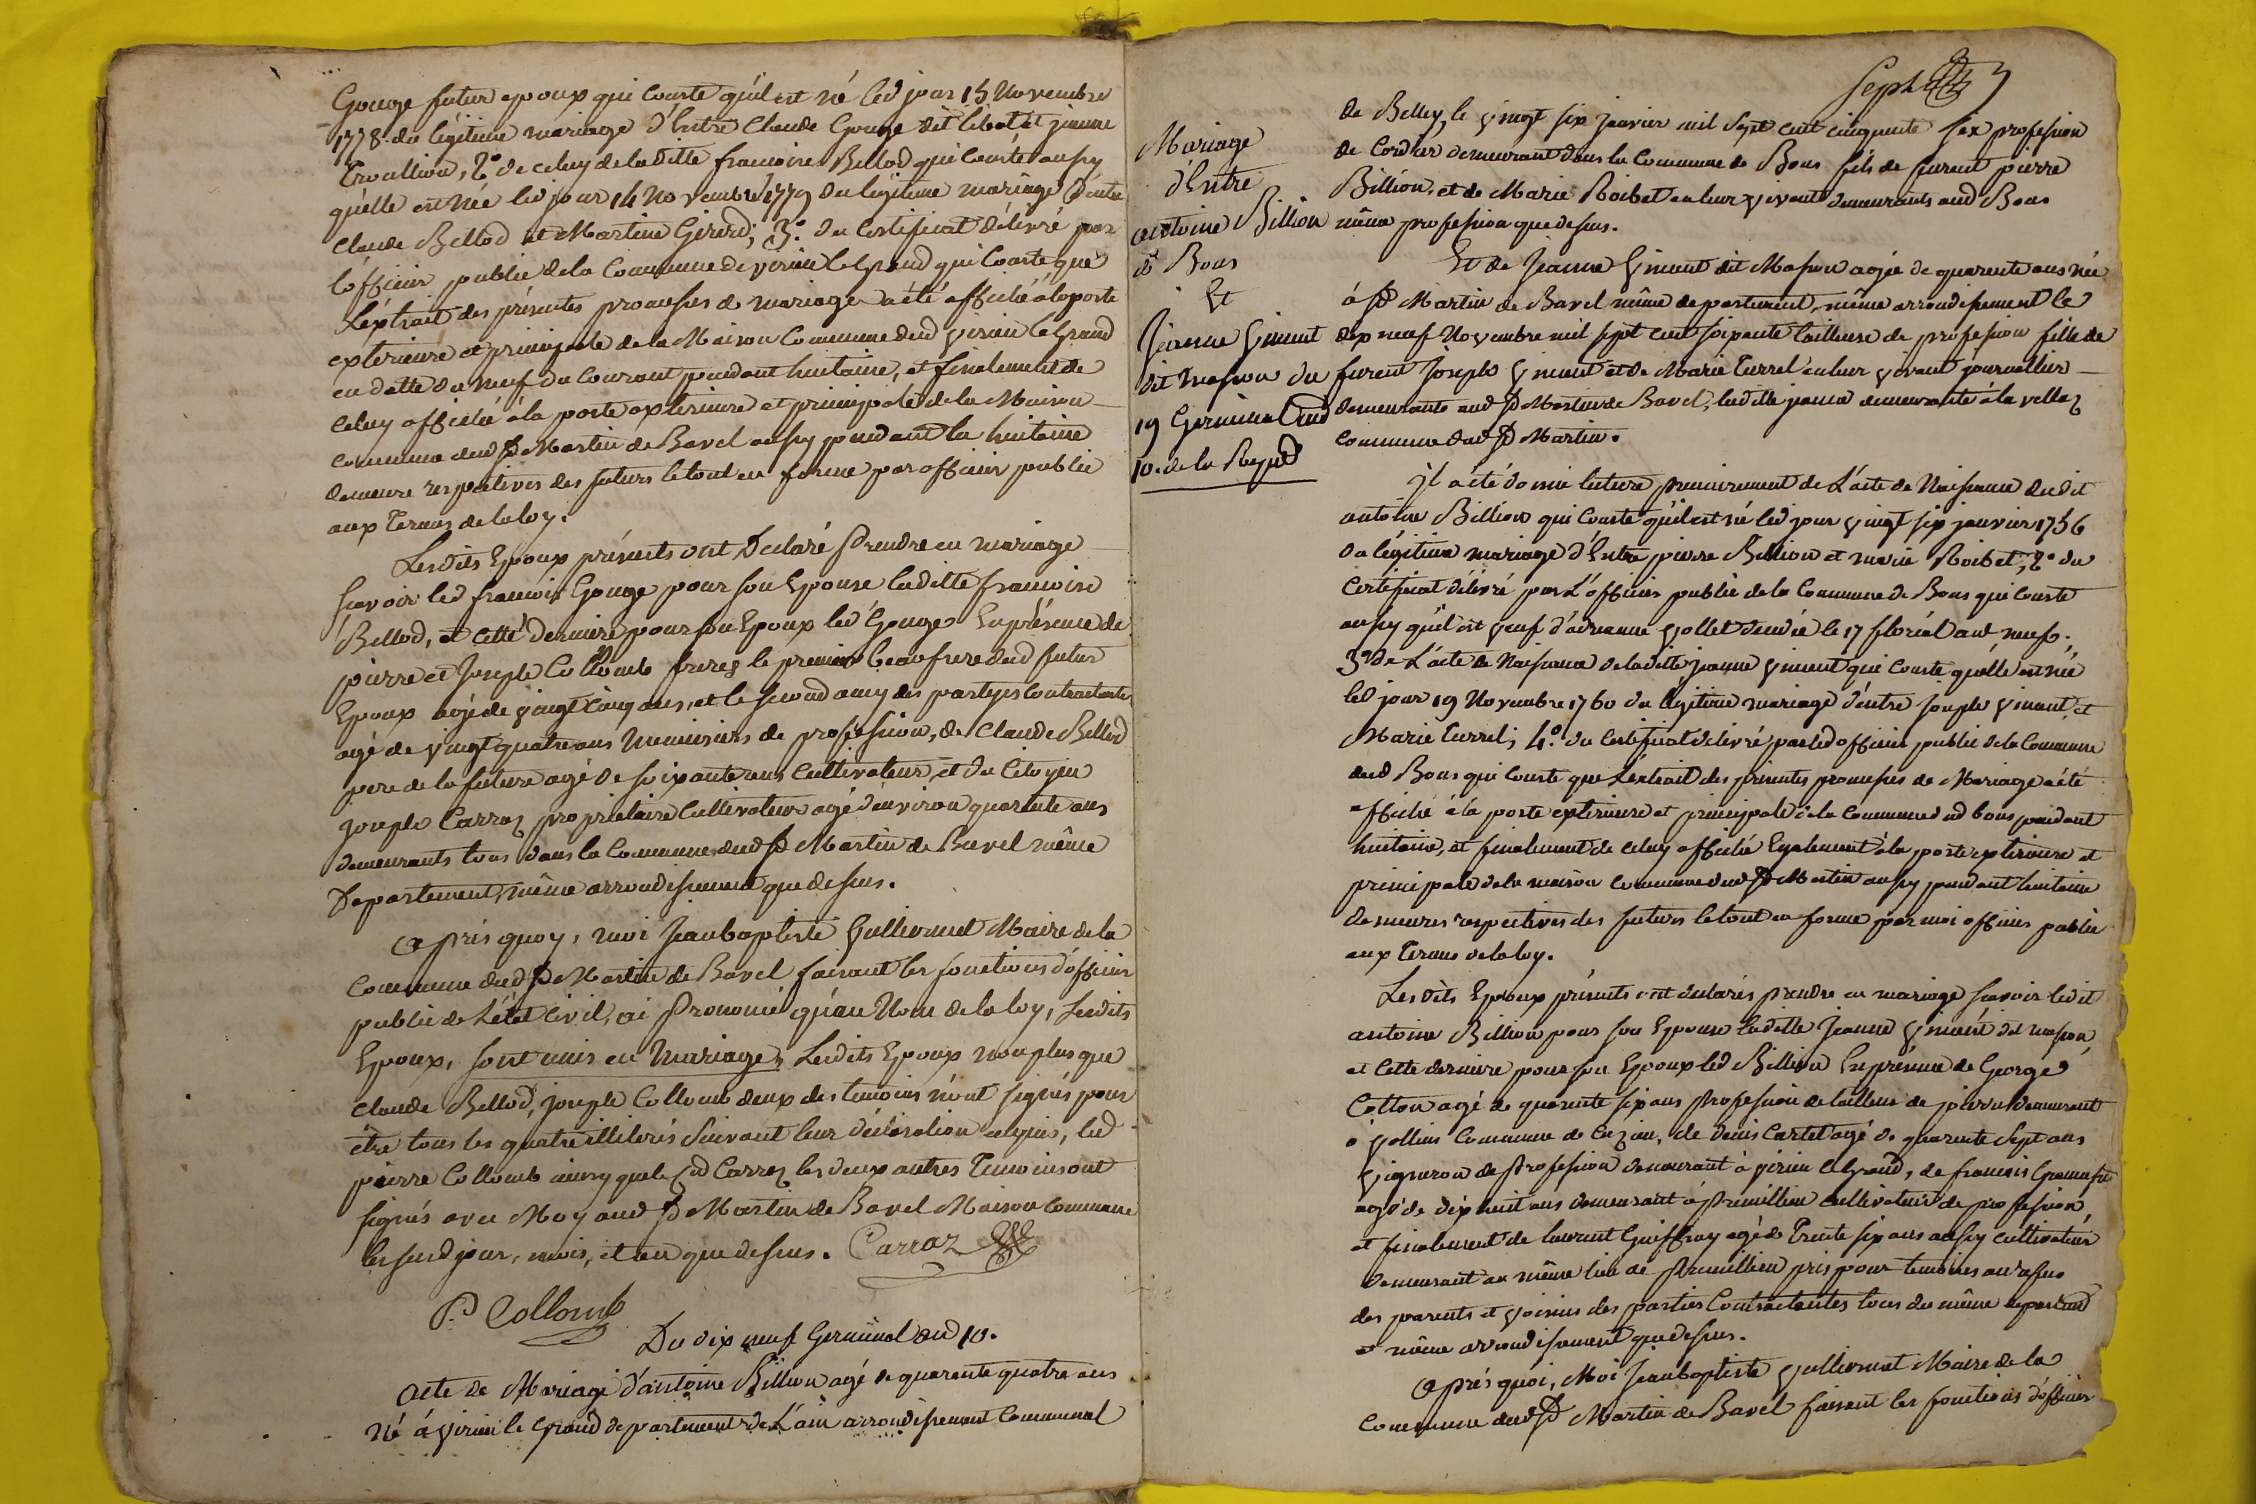 Gouge futur epoux qui conste qu'il est né led jour 15 Novembre
1778 du légitime mariage d'Entre Claude Gouge dit libot et jeanne
2° de celuy de laditte francoise Bellod qui conste aussy
qu'elle est née led jour 14 Novembre 1779 du légitime mariage d'entre
Claude Bellod et Martine Girerd; 3°. du Certificat délivré par
l'officier public de la Commune de virieu le Grand qui conste que
L'éxtrait des présentes promesses de mariage a été affiché à la porte
exterieure et principale de la Maison Commune dud virieu le Grand
en datte du neuf du Courant pendant huitaine, et finalement de
celuy affiché à la porte exterieure et principale de la Maison
commune dud St Martin de Bavel aussy pendant la huitaine
demeure respectives des futurs le tout en forme par officier public
aux Termes de la loy.
Lesdits Epoux présents ont Déclaré Prendre en mariage
scavoir led francois Gouge pour son Epouse laditte francoise
Bellod, et cette derniere pour son Epoux led Gouge En présence de
pierre et Joseph Collomb freres le premier beaufrere dud futur
Epoux agé de vingt cinq ans, et le second amy des partyes contractantes
agé de vingt quatre ans Menuisiers de profession, de Claude Bellod
pere de la future agé de soixante ans Cultivateur, et du Citoyen
joseph Carraz propriétaire Cultivateur agé d'environ quarente ans
demeurants tous dans la Commune dud St Martin de Bavel même
Département, même arrondissement que dessus.
Après quoy, moi Jeanbaptiste Vulliermet Maire de la
Commune dud St Martin de Bavel faisant les fonctions d'officier
public de L'état Civil, ai Prononcé qu'au Nom de la loy, lesdits
Epoux, sont unis en Mariage, Lesdits Epoux non plus que
claude Bellod, joseph Collomb deux des temoins n'ont signés pour
être tous les quatre illiterés suivant leur déclaration requis, led
pierre Collomb ainsy que le Cid Carraz les deux autres Temoins ont
signés avec Moy aud St Martin de Bavel Maison Commune
les susd jour, mois, et an que dessus. Carraz
P. Collomb
Du dix neuf Germinal an 10.
Acte de Mariage d'antoine Billion agé de quarente quatre ans
Né à virieu le Grand département de L'ain arrondissement Communal
Sept
Mariage
d'Entre
antoine Billion
de Bons
Et
Jeanne Vincent
dit masson du
19 Germinal an
10 de la Repub
de Belley, le vingt six janvier mil sept cent cinquante six profession
de Cordier demeurant dans la Commune de Bons fils de furent pierre
Billion, et de Marie Roibet en leur vivant demeurants aud Bons
même profession que dessus.
Et de Jeanne Vincent dit Masson agée de quarente ans née
à St Martin de Bavel même departement, même arrondissement le
dix neuf Novembre mil sept cent soixante tailleuse de profession fille de
furent Joseph Vincent et de Marie Turrel en leur vivant journallier
demeurants aud St Martin de Bavel, laditte jeanne demeurante à la vellaz
commune dud St Martin.
Jl a été donné lecture premierement de L'acte de Naissance dudit
antoine Billion qui Conste qu'il est né led jour vingt six janvier 1756
du légitime mariage d'Entre pierre Billion et marie Roibet, 2° du
Certificat délivré par L'officier public de la Commune de Bons qui conste
aussy qu'il est veuf d'adrianne vollet décédée le 17 floréal an neuf;
3° de L'acte de Naissance de laditte jeanne vincent qui Conste qu'elle est née
led jour 19 Novembre 1760 du légitime mariage d'entre joseph vincent, et
Marie Turrel; 4°. du Certificat délivré par led officier public de la Commune
dud Bons qui Conste que L'éxtrait des présentes promesses de Mariage a été
affiché à la porte exterieure et principale de la Commune dud bons pendant
huitaine, et finalement de celuy affiché Egalement à la porte exterieure et
principale de la maison commune dud St Martin aussy pendant huitaine
demeures respectives des futurs le tout en forme par moi officier public
aux Termes de la loy.
Les dits Epoux présents ont déclarés prendre en mariage scavoir ledit
antoine Billion pour son Epouse laditte Jeanne Vincent dit masson,
et Cette derniere pour son Epoux led Billion En présence de George
Cotton agé de quarente six ans Profession de tailleur de pierre demeurant
à vollien Commune de Cuzieu, de denis Cartet agé de quarente sept ans
vigneron de Profession demeurant à virieu le Grand, de francois
agé de dix huit ans demeurant à Prémillieu cultivateur de profession,
et finalement de laurent Guiffray agé de Trente six ans aussy cultivateur
demeurant au même lieu de Prémillieu pris pour temoins au refus
des parents et voisins des parties Contractantes tous du même département
et même arrondissement que dessus.
Après quoi, Moi Jeanbaptiste Vulliermet Maire de la
Commune dud St Martin de Bavel faisant les fonctions d'officier